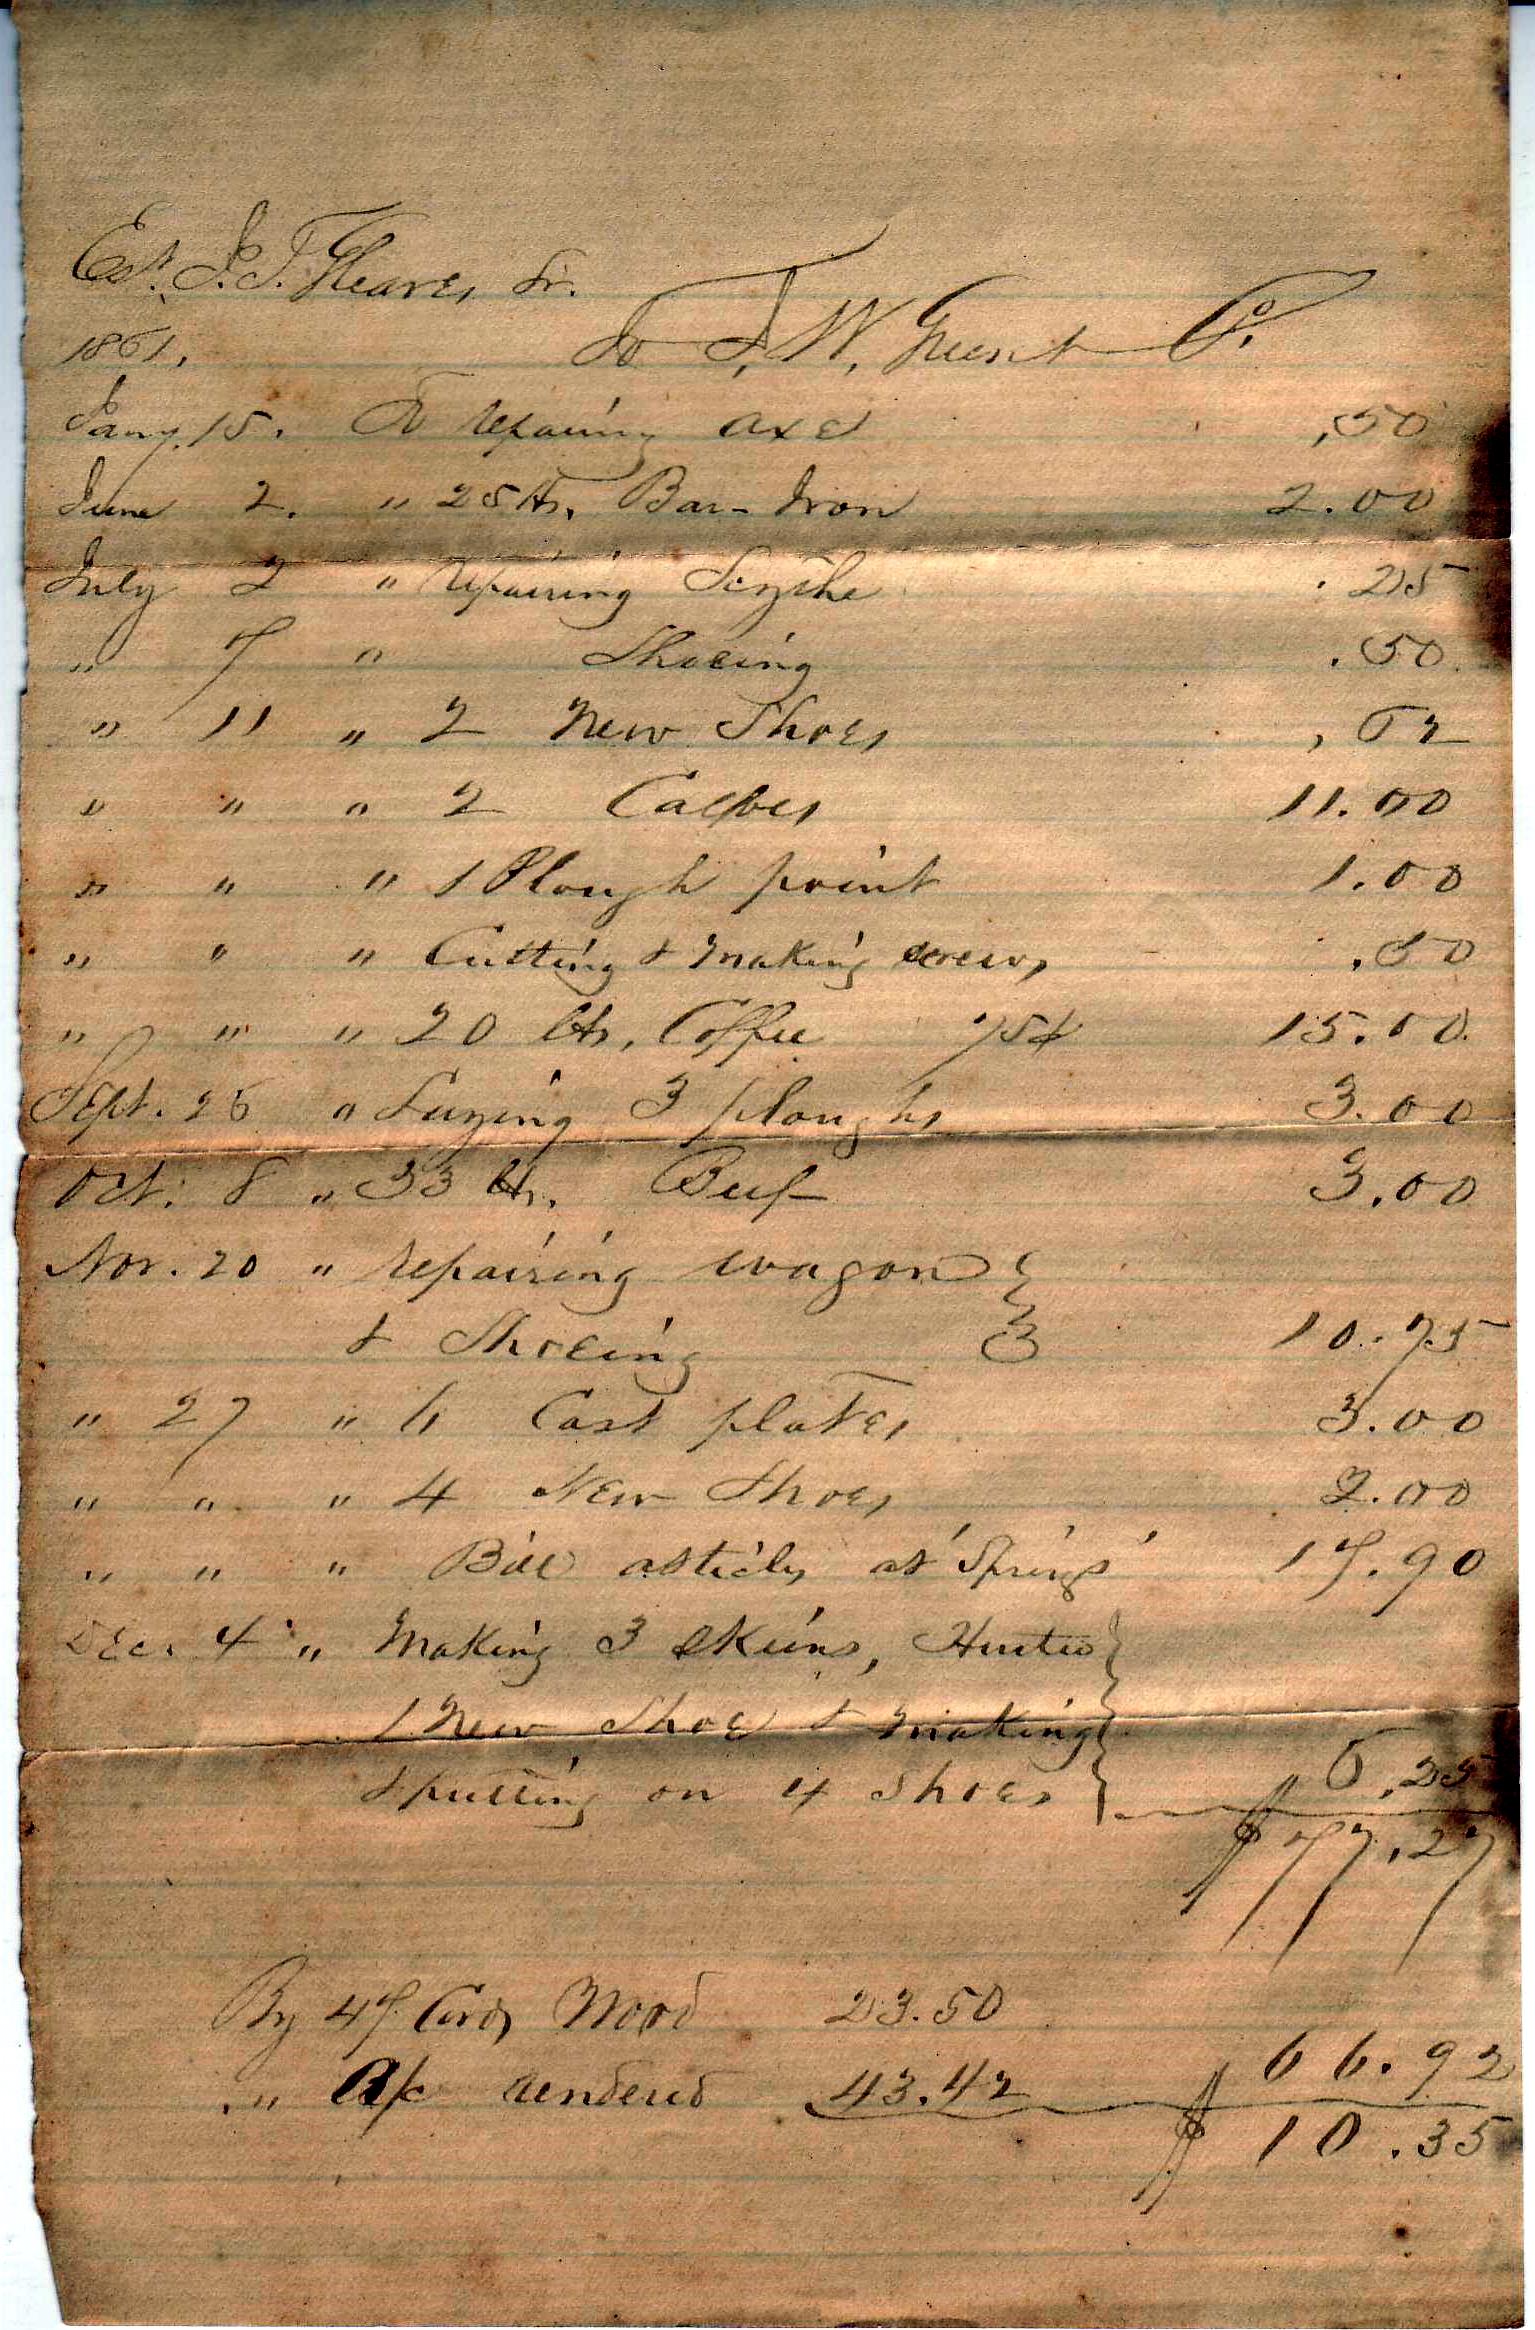 Est. J. T. Sr.
1861. To W.
Jany. 15. To repairing axe .50
June 2. " 25 lbs. Bar-Iron 2.00
July 2 " repairing Scythe .25
" 7 " Shoeing .50
" 11 " 2 New Shoes .62
" " " 2 Calves 11.00
" " " 1 Plough point 1.00
" " " Cutting & making screws .50
" " " 20 lbs. Coffee 75¢ 15.00
Sept. 26 " Laying 3 ploughs 3.00
Oct. 8 " 33 lbs. Beef 3.00
Nov. 20 " repairing wagon
& Shoeing 10.75
" 27 " 6 Cast plates 3.00
" " " 4 New Shoes 2.00
" " " Bill articles at 'Springs' 17.90
Dec. 4 " Making 3 Skeins,
1 New Shoe & making
& putting on 4 shoes 6.25
$77.27
By 47 Cords Wood 23.50
" A/c rendered 43.42 66.92
$10.35